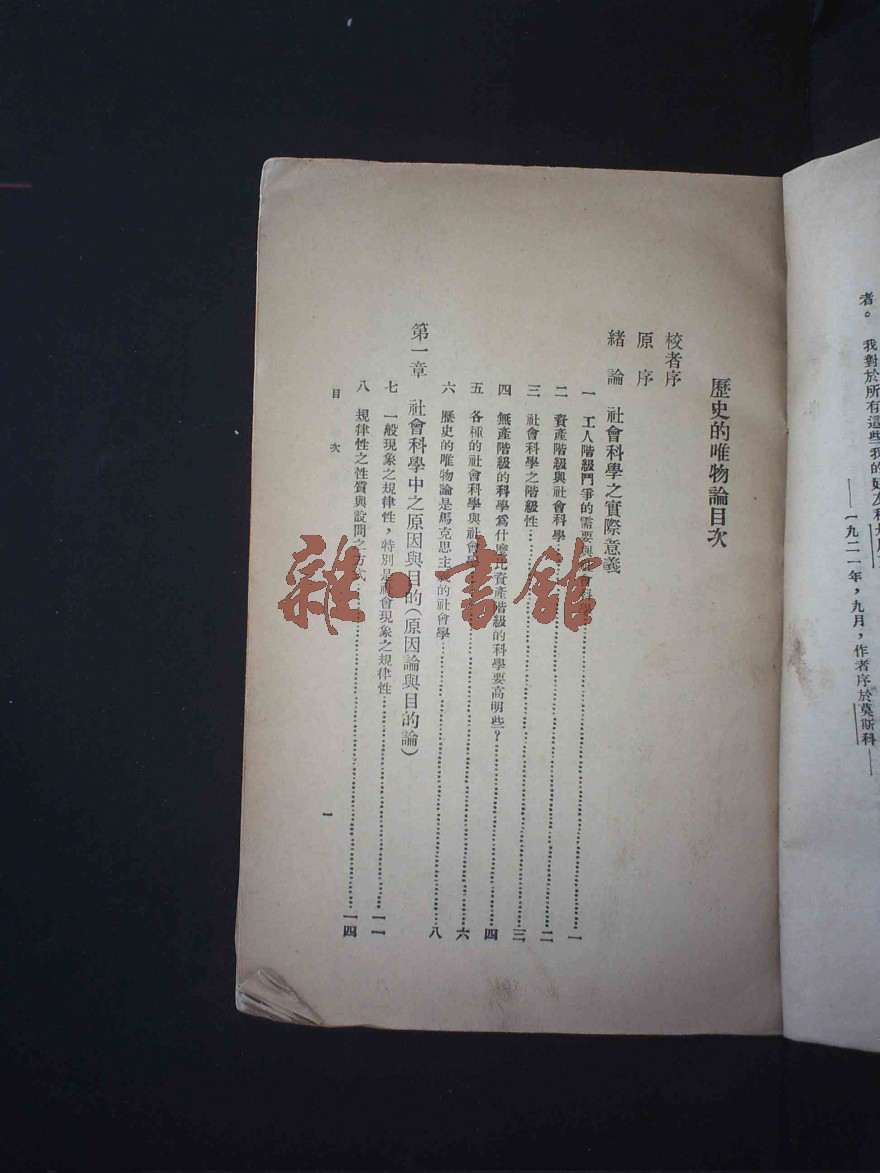 者。 我對於所有這些我的好友和
——一九二一年，九月，作者序於莫斯科——
歷史的唯物論目次
校者序
原 序
緒 論 社會科學之實際意義
一 工人階級鬥爭的需要與社會科學……一
二 資產階級與社會科學……二
三 社會科學之階級性……三
四 無產階級的科學爲什麼比資產階級的科學要高明些？……四
五 各種的社會科學與社會學……六
六 歷史的唯物論是馬克思主義的社會學……八
第一章 社會科學中之原因與目的（原因論與目的論）
七 一般現象之規律性，特別是社會現象之規律性……一一
八 規律性之性質與設問之方式……一四
目 次
一
雜·書館